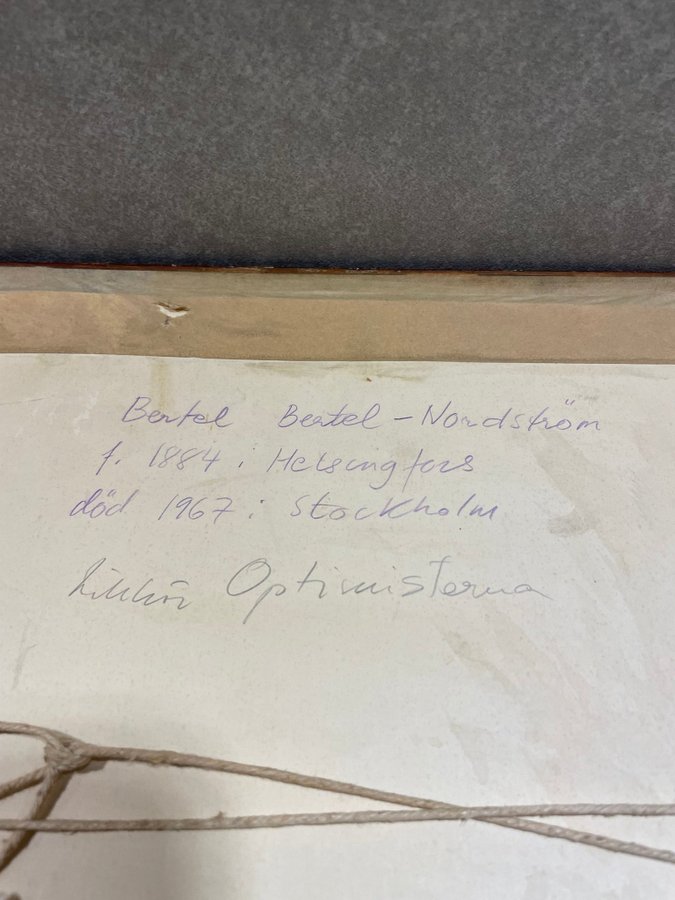 Bertel Bertel-Nordström
f. 1884 i Helsingfors
död 1967 i Stockholm
Optimisterna